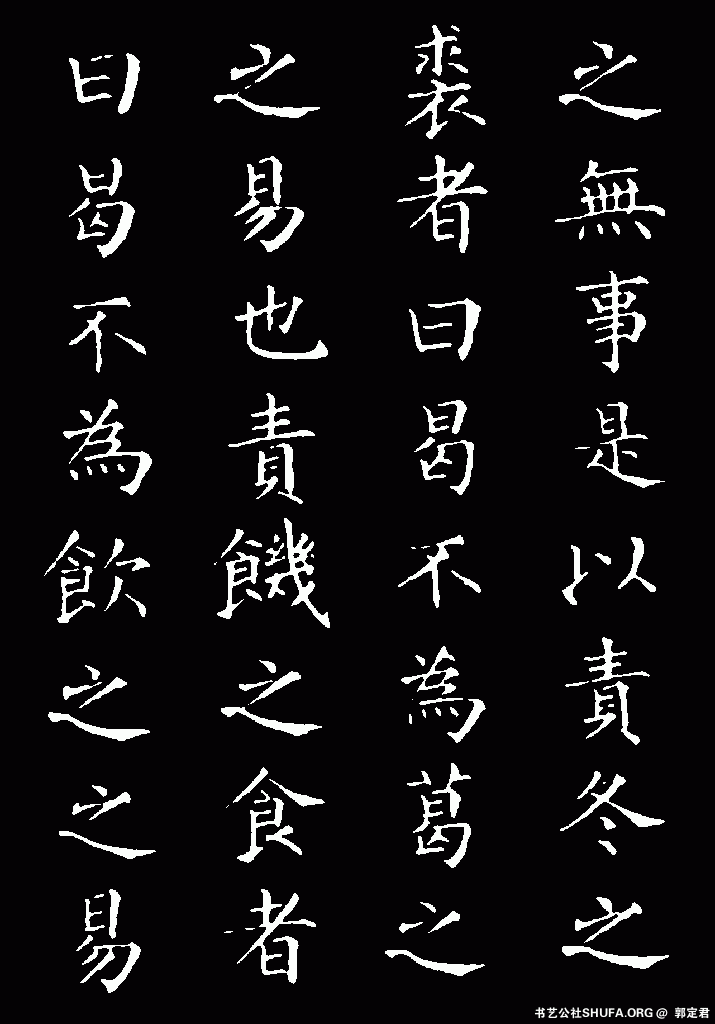 之無事是以責冬之
裘者曰曷不為葛之
之易也責饑之食者
曰曷不為飲之之易
书艺公社SHUFA.ORG @ 郭定君